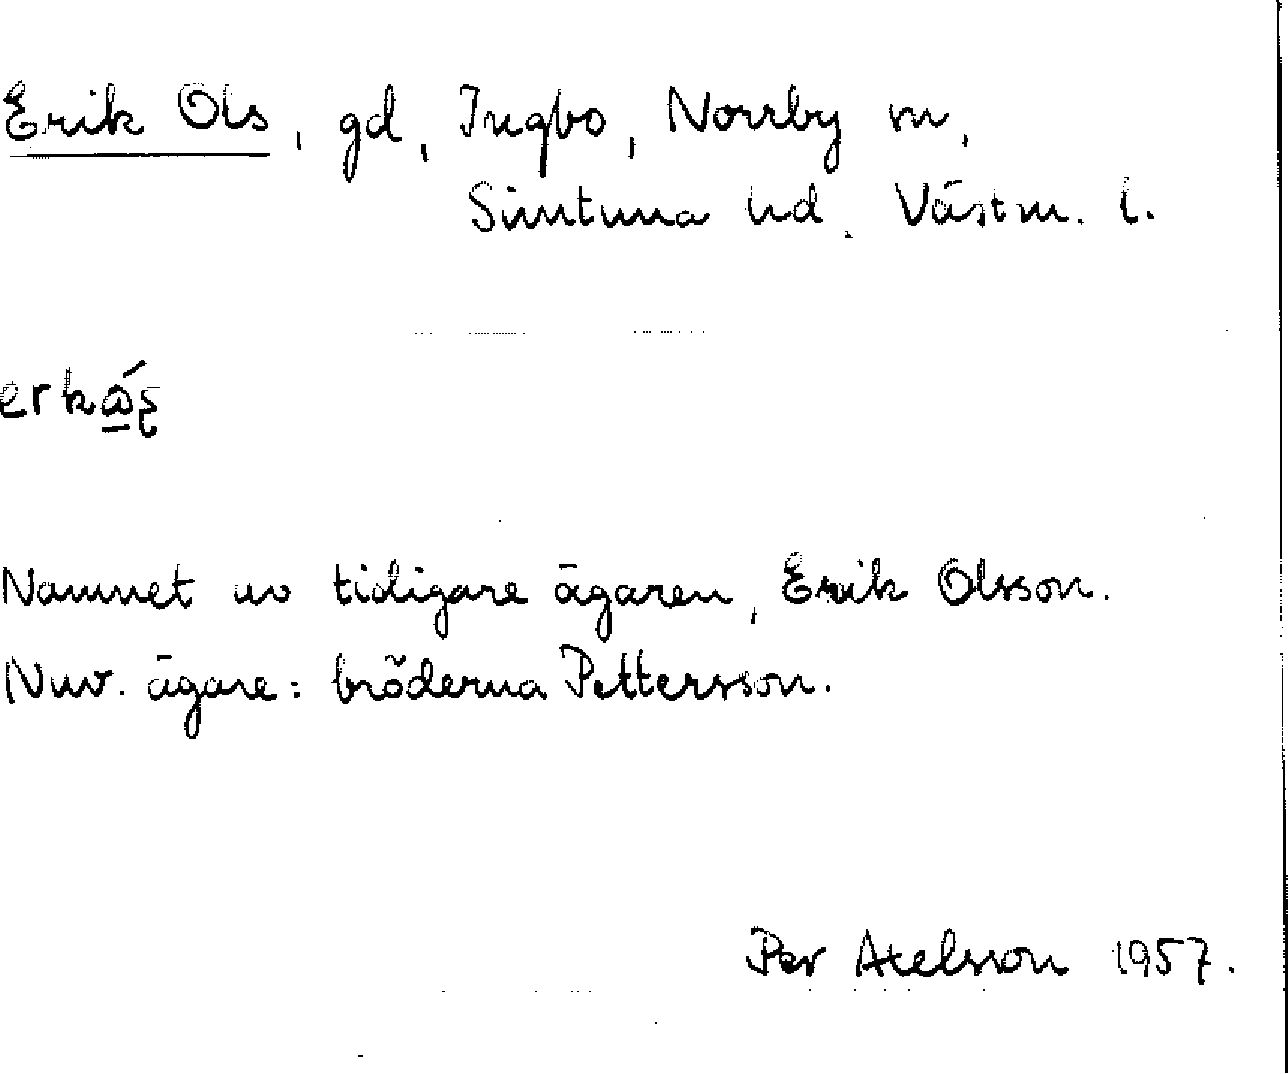 Erik Ols, gd, Ingbo, Norrby sn,
Simtuna hd. Västm. l.
Namnet av tidigare ägaren, Erik Olsson.
Nuv. ägare: bröderna Pettersson.
Per Axelsson 1957.